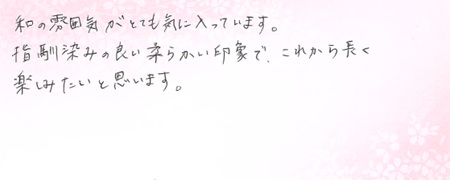 和の雰囲気がとても気に入っています。
指馴染みの良い柔らかい印象で、これから長く
楽しみたいと思います。